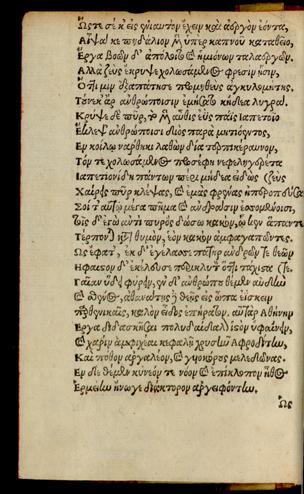 Ὥστε σε κ' εἰς ἐνιαυτὸν ἔχειν καὶ ἀεργὸν ἐόντα,
Αἶψά κε πηδάλιον μὲν ὑπὲρ καπνοῦ καταθεῖο,
Ἔργα βοῶν δ' ἀπόλοιτο καὶ ἡμιόνων ταλαεργῶν.
Ἀλλὰ ζεὺς ἔκρυψε χολωσάμενος φρεσὶν ᾗσιν,
Ὅττι μιν ἐξαπάτησε προμηθεὺς ἀγκυλομήτης.
Τοὔνεκ' ἄρ' ἀνθρώποισιν ἐμήσατο κήδεα λυγρά.
Κρύψε δὲ πῦρ, τὸ μὲν αὖθις ἐῢς πάϊς ἰαπετοῖο
Ἔκλεψ' ἀνθρώποισι διὸς παρὰ μητιόεντος,
Ἐν κοίλῳ νάρθηκι λαθὼν δία τερπικέραυνον,
Τὸν δὲ χολωσάμενος προσέφη νεφεληγερέτα
Ἰαπετιονίδη πάντων πέρι μήδεα εἰδὼς (ζεὺς
Χαίρεις πῦρ κλέψας, καὶ ἐμὰς φρένας ἠπεροπεύσας
Σοί τ' αὐτῷ μέγα πῆμα καὶ ἀνδράσιν ἐσσομένοισι,
Τοῖς δ' ἐγὼ ἀντὶ πυρὸς δώσω κακὸν, ᾧ κεν ἅπαντες
Τέρπονται κατὰ θυμὸν, ἑὸν κακὸν ἀμφαγαπῶντες.
Ὣς ἔφατ', ἐκ δ' ἐγέλασσε πατὴρ ἀνδρῶν τε θεῶν τε
Ἥφαιστον δ' ἐκέλευσε περικλυτὸν ὅττι τάχιστα
Γαῖαν ὕδει φύρειν, ἐν δ' ἀνθρώπου θέμεν αὐδὴν
Καὶ σθένος, ἀθανάτης δὲ θεῆς εἰς ὦπα ἐΐσκειν
Παρθενικαῖς, καλὸν εἶδος ἐπήρατον. αὐτὰρ Ἀθήνην
Ἔργα διδασκῆσαι πολυδαίδαλον ἱστὸν ὑφαίνειν,
Καὶ χάριν ἀμφιχέαι κεφαλῇ χρυσῆν Ἀφροδίτην,
Καὶ πόθον ἀργαλέον, καὶ γυιοκόρους μελεδῶνας.
Ἐν δὲ θέμεν κύνεόν τε νόον καὶ ἐπίκλοπον ἦθος
Ἑρμείην ἤνωγε διάκτορον ἀργειφόντην.
Ὣς